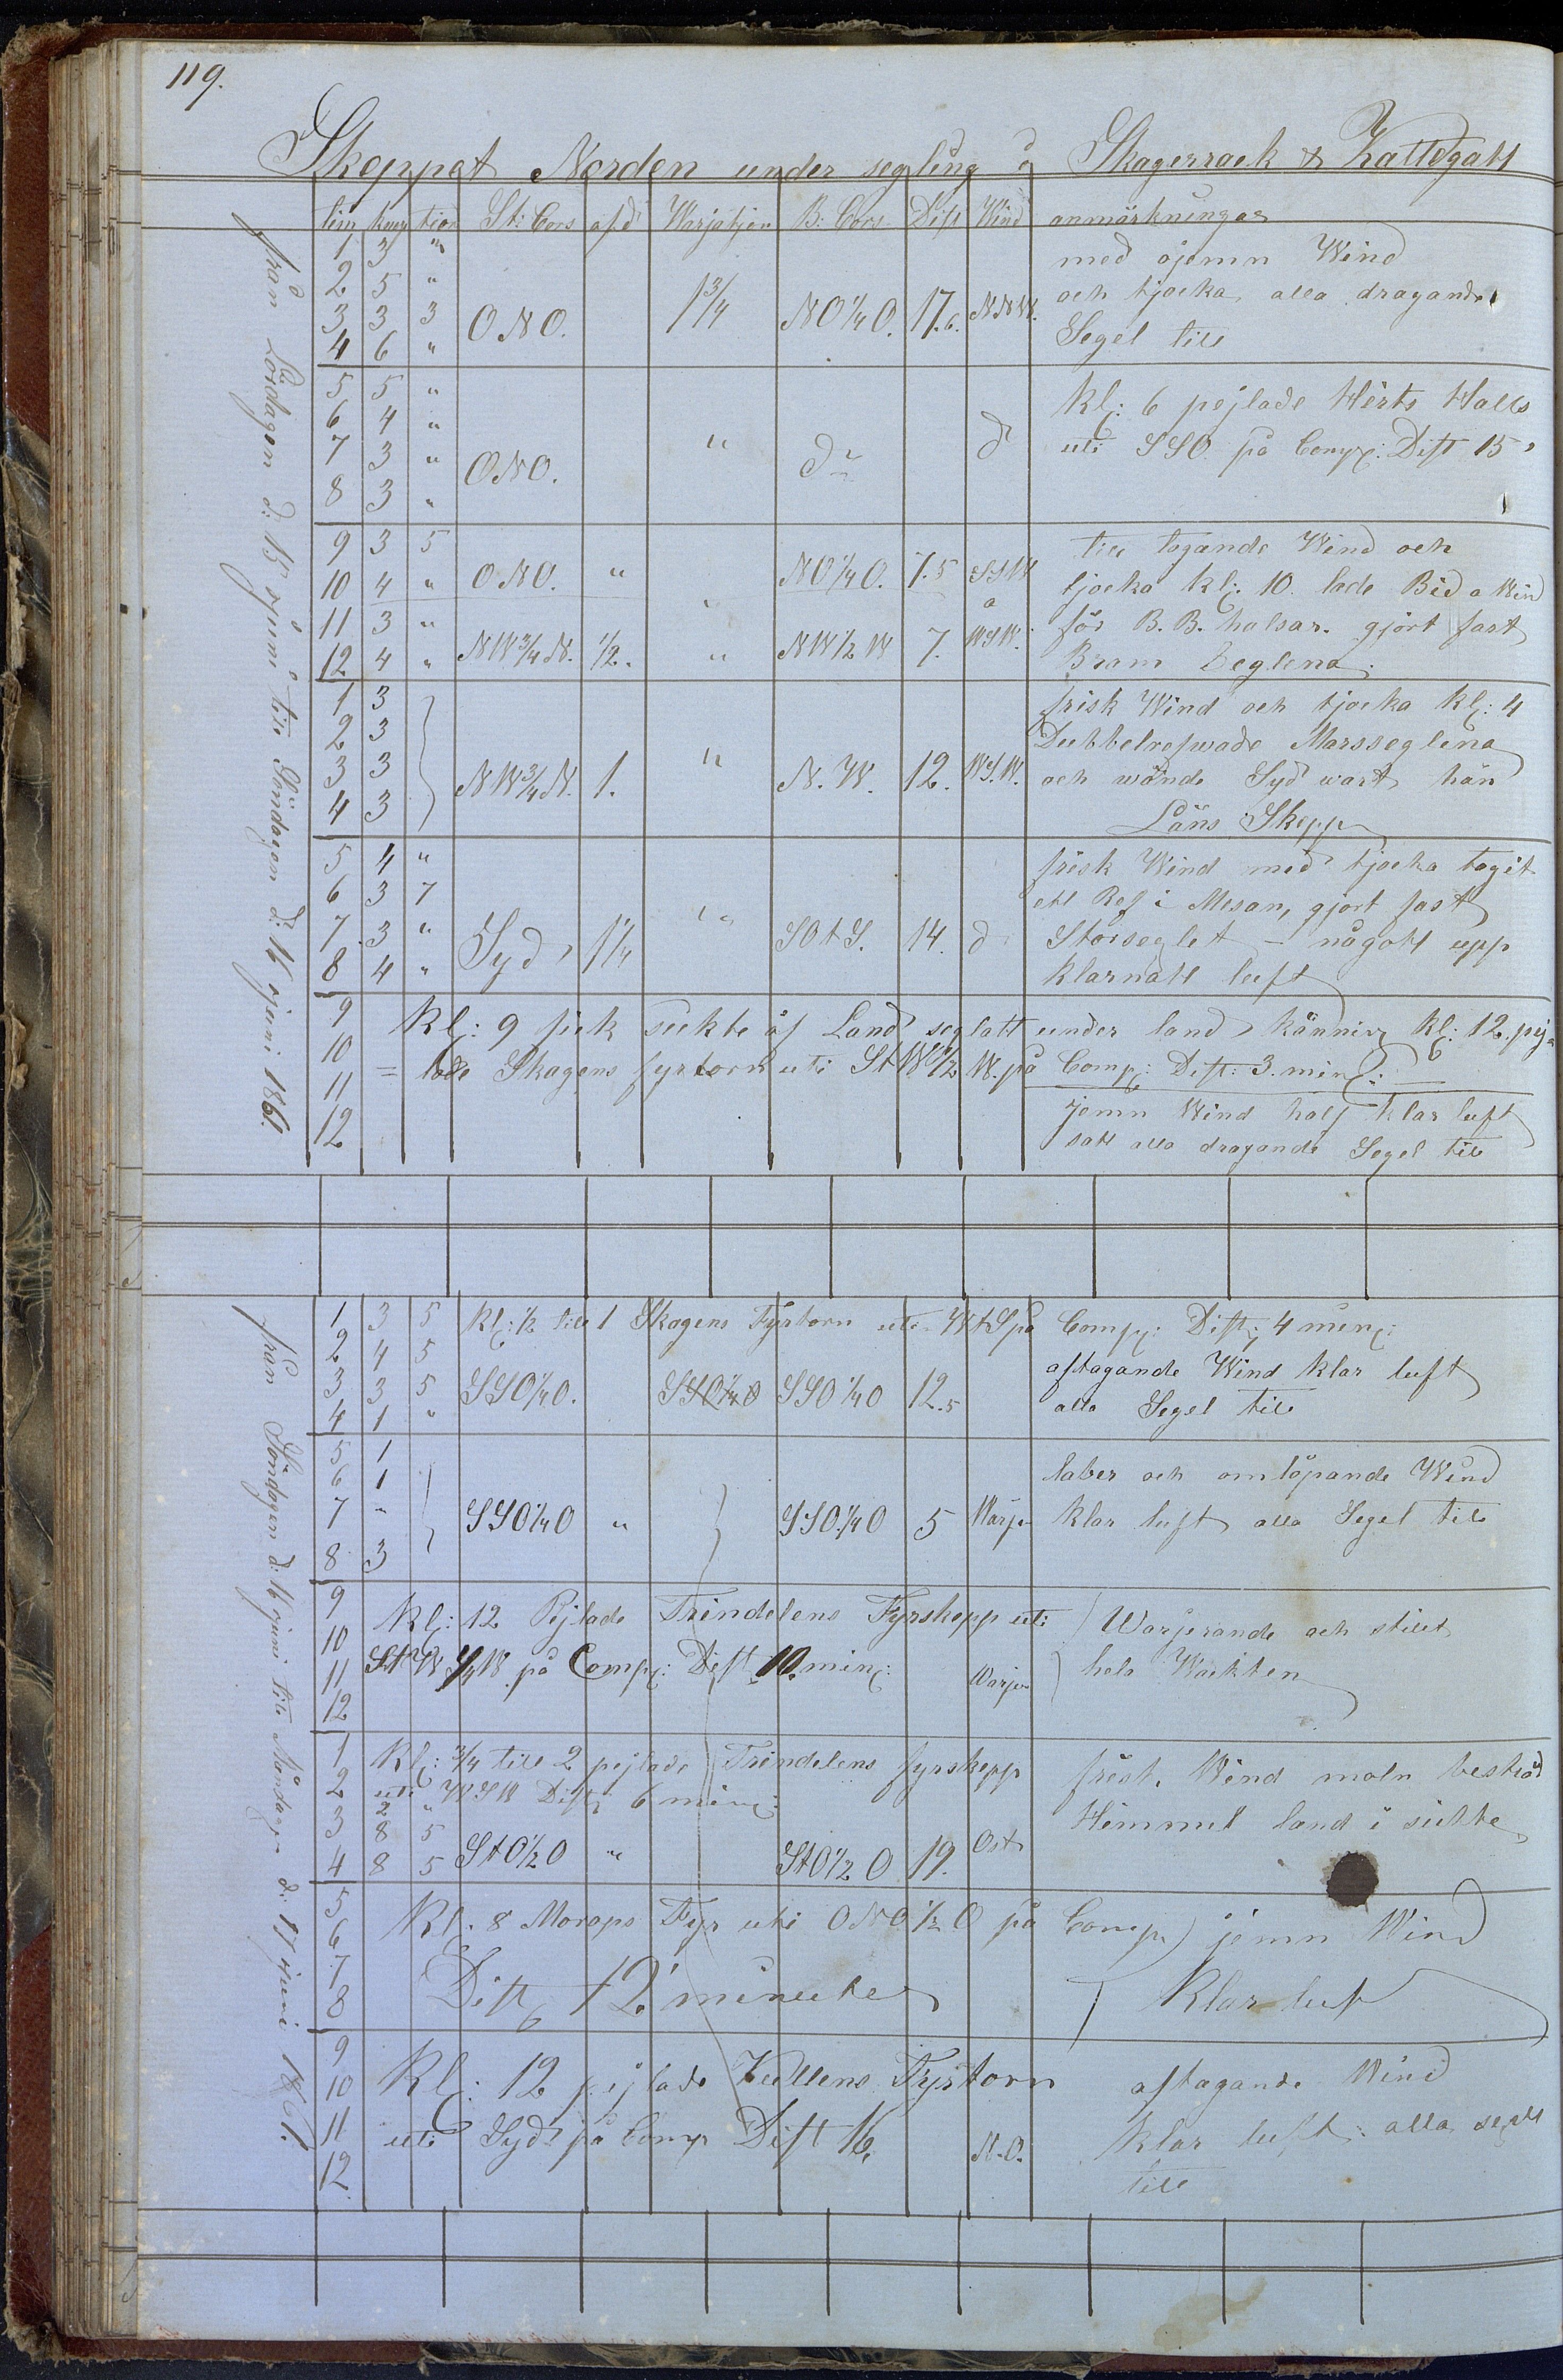 119.
Skeppet Norden under segling i Skagerrack & Kattegatt
tim knop tion St: Cors afd Warjatjon B: Cors Dist Wind anmärkningar
från Lördagen d: 15 juni till Söndagen d: 16 juni 1861.
1 3 "
2 5 "
3 3 3 ONO. 1 3/4 NO 1/4 O. 17.6. NNW.
4 6 "
med ojemn Wind
och tjocka, alla dragande
Segel till
5 5 "
6 4 "
7 3 " ONO. " do d
8 3 "
Kl: 6 pejlade Hirts Halls
uti SSO på Comp: Dist 15'
9 3 5
10 4 " ONO. " NO 1/4 O. 7.5 SSW
11 3 " a
12 4 " NW 3/4 N. 1/2. " NW 1/2 W 7. WSW.
till tagande Wind och
tjocka kl: 10. lade Bid a Wind
för B. B. halsar. gjort fast
Bram Seglena.
1 3
2 3
3 3 NW 3/4 N. 1. " N. W. 12. WSW.
4 3
frisk Wind och tjocka kl: 4
Dubbelrefwade Marsseglena
och wände Syd wart hän
Läns Skepp
5 4 "
6 3 7
7 3 " Syd 1 1/4 " SOtS. 14. d
8 4 "
frisk Wind med tjocka tagit
ett Ref i Mesan, gjort fast
Storseglet – något upp
klarnatt luft
9 Kl: 9 fick sickte af Land seglatt under land känning kl: 12. pej
10 = lade Skagens fyrtorn uti StW 1/2 W. på Comp: Dist: 3. min:
11
12
jemn Wind half klar luft
satt alla dragande Segel till
från Söndagen d: 16 juni till Måndagen d: 17 juni 1861.
1 3 5 Kl: 1/2 till 1 Skagens Fyrtorn uti WtS på Comp: Dist: 4 min:
2 4 5
3 3 5 SSO 1/4 O. SSO 1/4 O SSO 1/4 O 12.5
4 1 "
aftagande Wind klar luft
alla Segel till
5 1
6 1
7 " SSO 1/4 O " SSO. 1/4 O 5 Warje
8 3
laber och omlöpande Wind
klar luft alla Segel till
9
10 Kl: 12 Pejlade Trindelens Fyrskepp uti
11 StW 1/4 W på Comp: Dist 10. min: Warje
12
Warjerande och stilt
hela Wackten
1 Kl: 3/4 till 2 pejlade Trindelens fyrskepp
2 uti WSW Dist: 6 min:
2 "
3 8 5
4 8 5 StO 1/2 O " StO 1/2 O 19. Ost
frisk. Wind moln beströd
Himmel land i sickte
5
6 Kl. 8 Morops Fyr uti ONO. 1/2 O på Comp.
7
8 Dist 12' minuter
jemn Wind
Klar luft
9
10 Kl: 12 pejlade Kullens Fyrtorn
11 uti Syd på Comp Dist 16. N.O.
12.
aftagande Wind
klar luft: alla segel
till